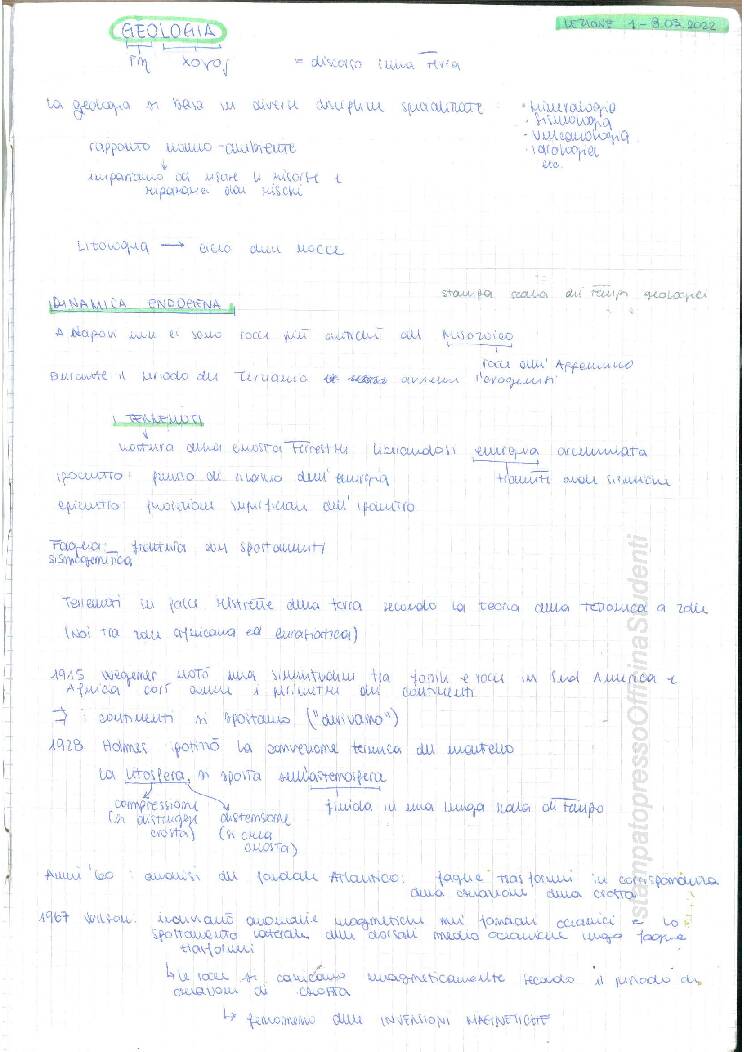 GEOLOGIA
LEZIONE 1 - 8.03.2022
γῆ λογος = discorso sulla Terra
La geologia si basa su diverse discipline specializzate:
· Mineralogia
· Sismologia
· Vulcanologia
· Idrologia
etc.
rapporto uomo-ambiente
impariamo ad usare le risorse e
ripararci dai rischi
Litologia → ciclo delle rocce
stampa scala dei tempi geologici
DINAMICA ENDOGENA
A Napoli non ci sono rocce più antiche del Mesozoico
rocce dell'Appennino
Durante il periodo del Terziario avvenne l'orogenesi
I TERREMOTI
rottura della crosta terrestre liberandosi energia accumulata
tramite onde sismiche
ipocentro: punto di rilascio dell'energia
epicentro: proiezione superficiale dell'ipocentro
Faglia: frattura con spostamenti
sismogenetica
Terremoti in fasce ristrette della terra secondo la teoria della tettonica a zolle
(Noi tra zolle africana ed euroasiatica)
1915 Wegener notò una similitudine tra fossili e rocce in Sud America e
Africa così come i perimetri dei continenti
⇒ i continenti si spostano ("derivano")
1928 Holmes ipotizzò la convenzione termica del mantello
La litosfera, si sposta sull'astenosfera
compressione
(si distrugge
crosta)
distensione
(si crea
crosta)
fluida in una lunga scala di tempo
Anni '60: analisi del fondale Atlantico: faglie trasformi in corrispondenza
della creazione della crosta
1967 Wilson: individuò anomalie magnetiche nei fondali oceanici = lo
spostamento laterale delle dorsali medio oceaniche lungo faglie
trasformi
↳ le rocce si caricano magneticamente secondo il periodo di
creazione di crosta
↳ fenomeno delle INVERSIONI MAGNETICHE
stampatopressoOfficinaStudenti